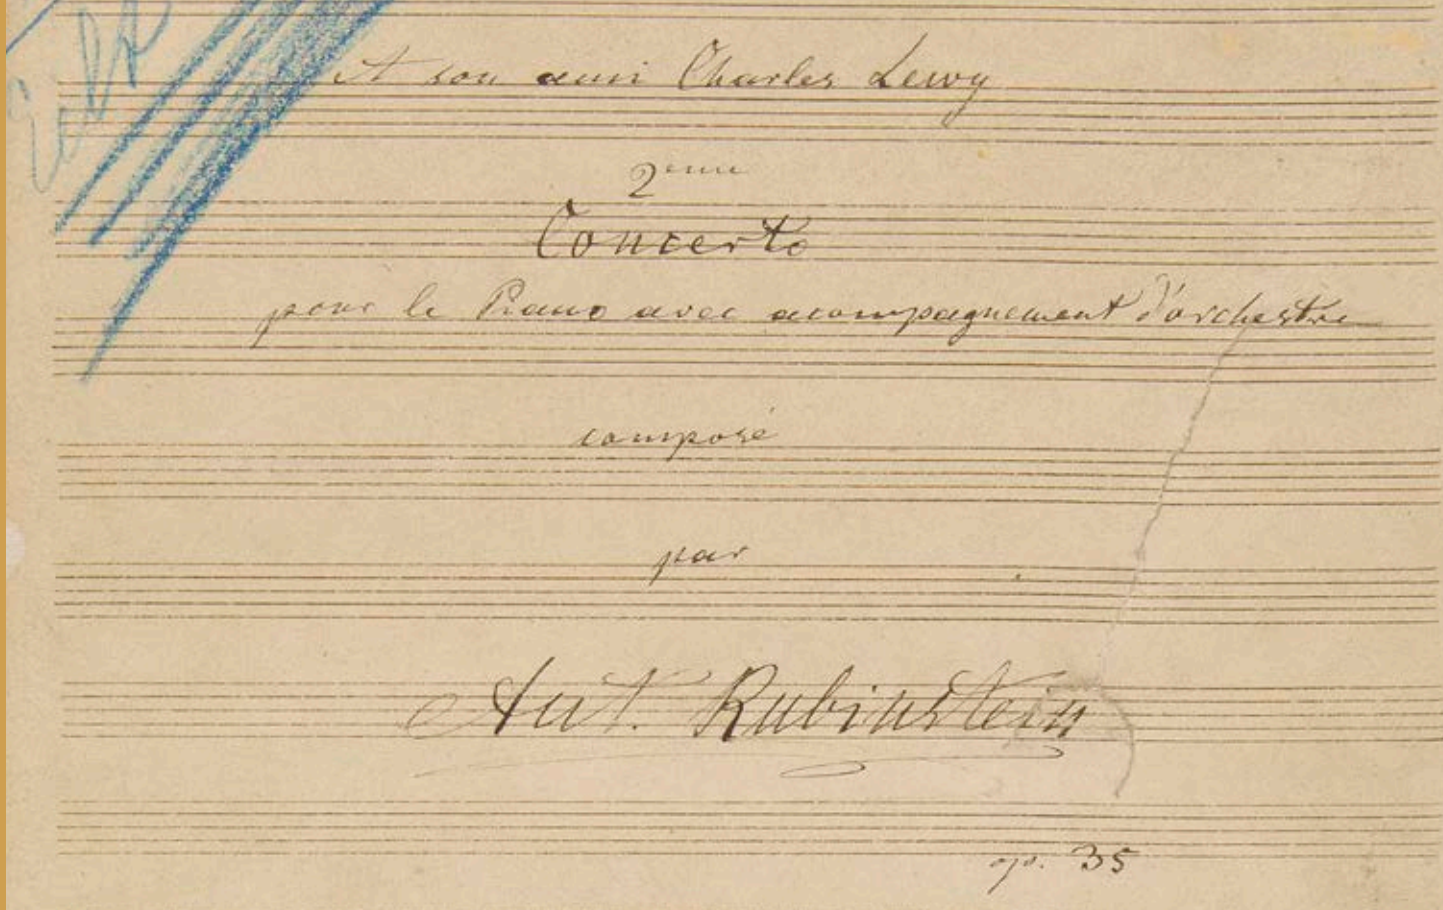 A son ami Charles Lewy
2eme
Concerto
pour le Piano avec acompagnement d'orchestre
composé
par
Ant. Rubinstein
op. 35